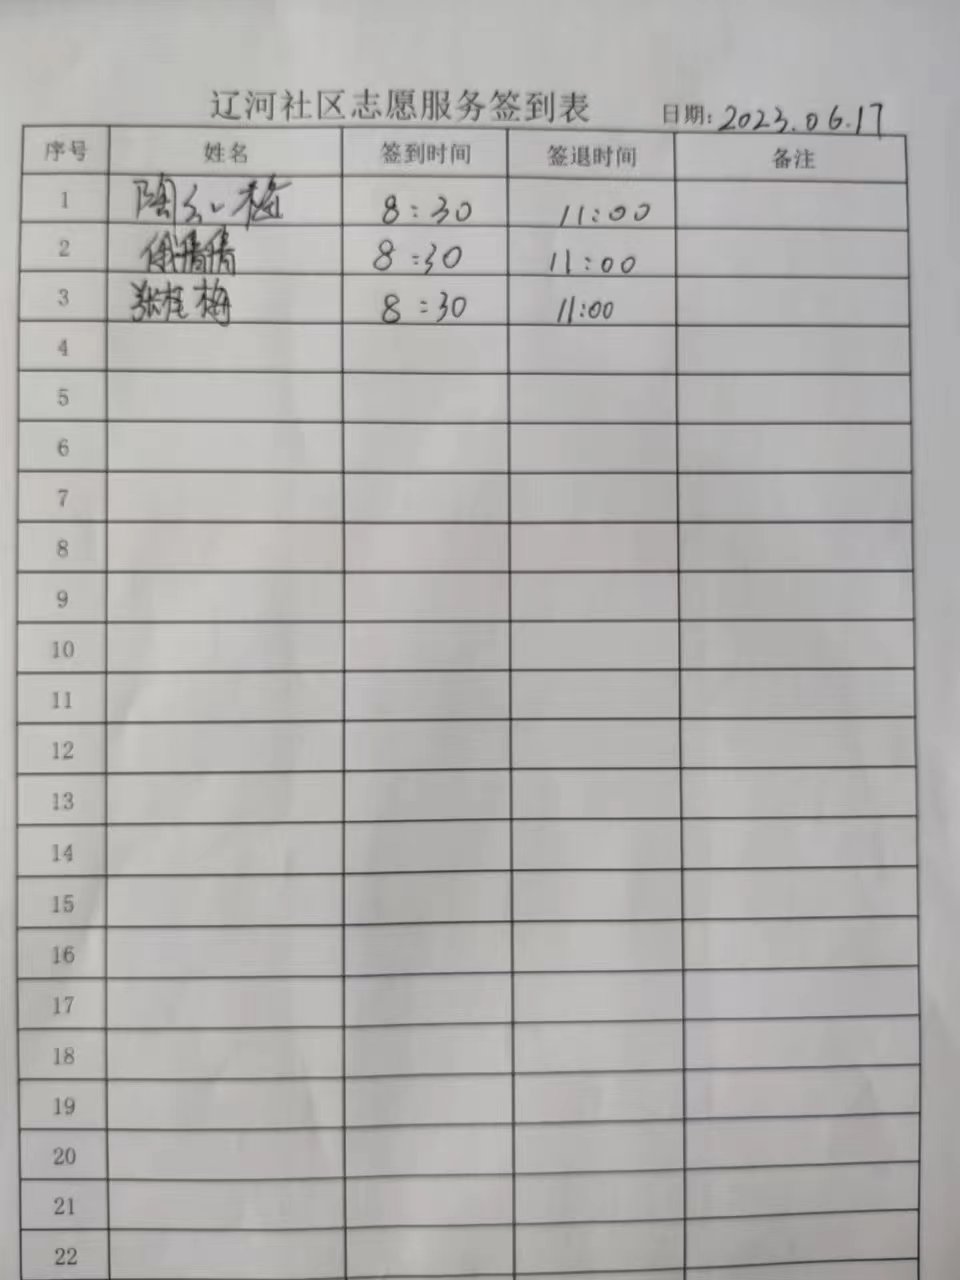 辽河社区志愿服务签到表 日期:2023.06.17
序号 姓名 签到时间 签退时间 备注
1 陶 梅 8:30 11:00
2 徐倩倩 8:30 11:00
3 张桂梅 8:30 11:00
4
5
6
7
8
9
10
11
12
13
14
15
16
17
18
19
20
21
22